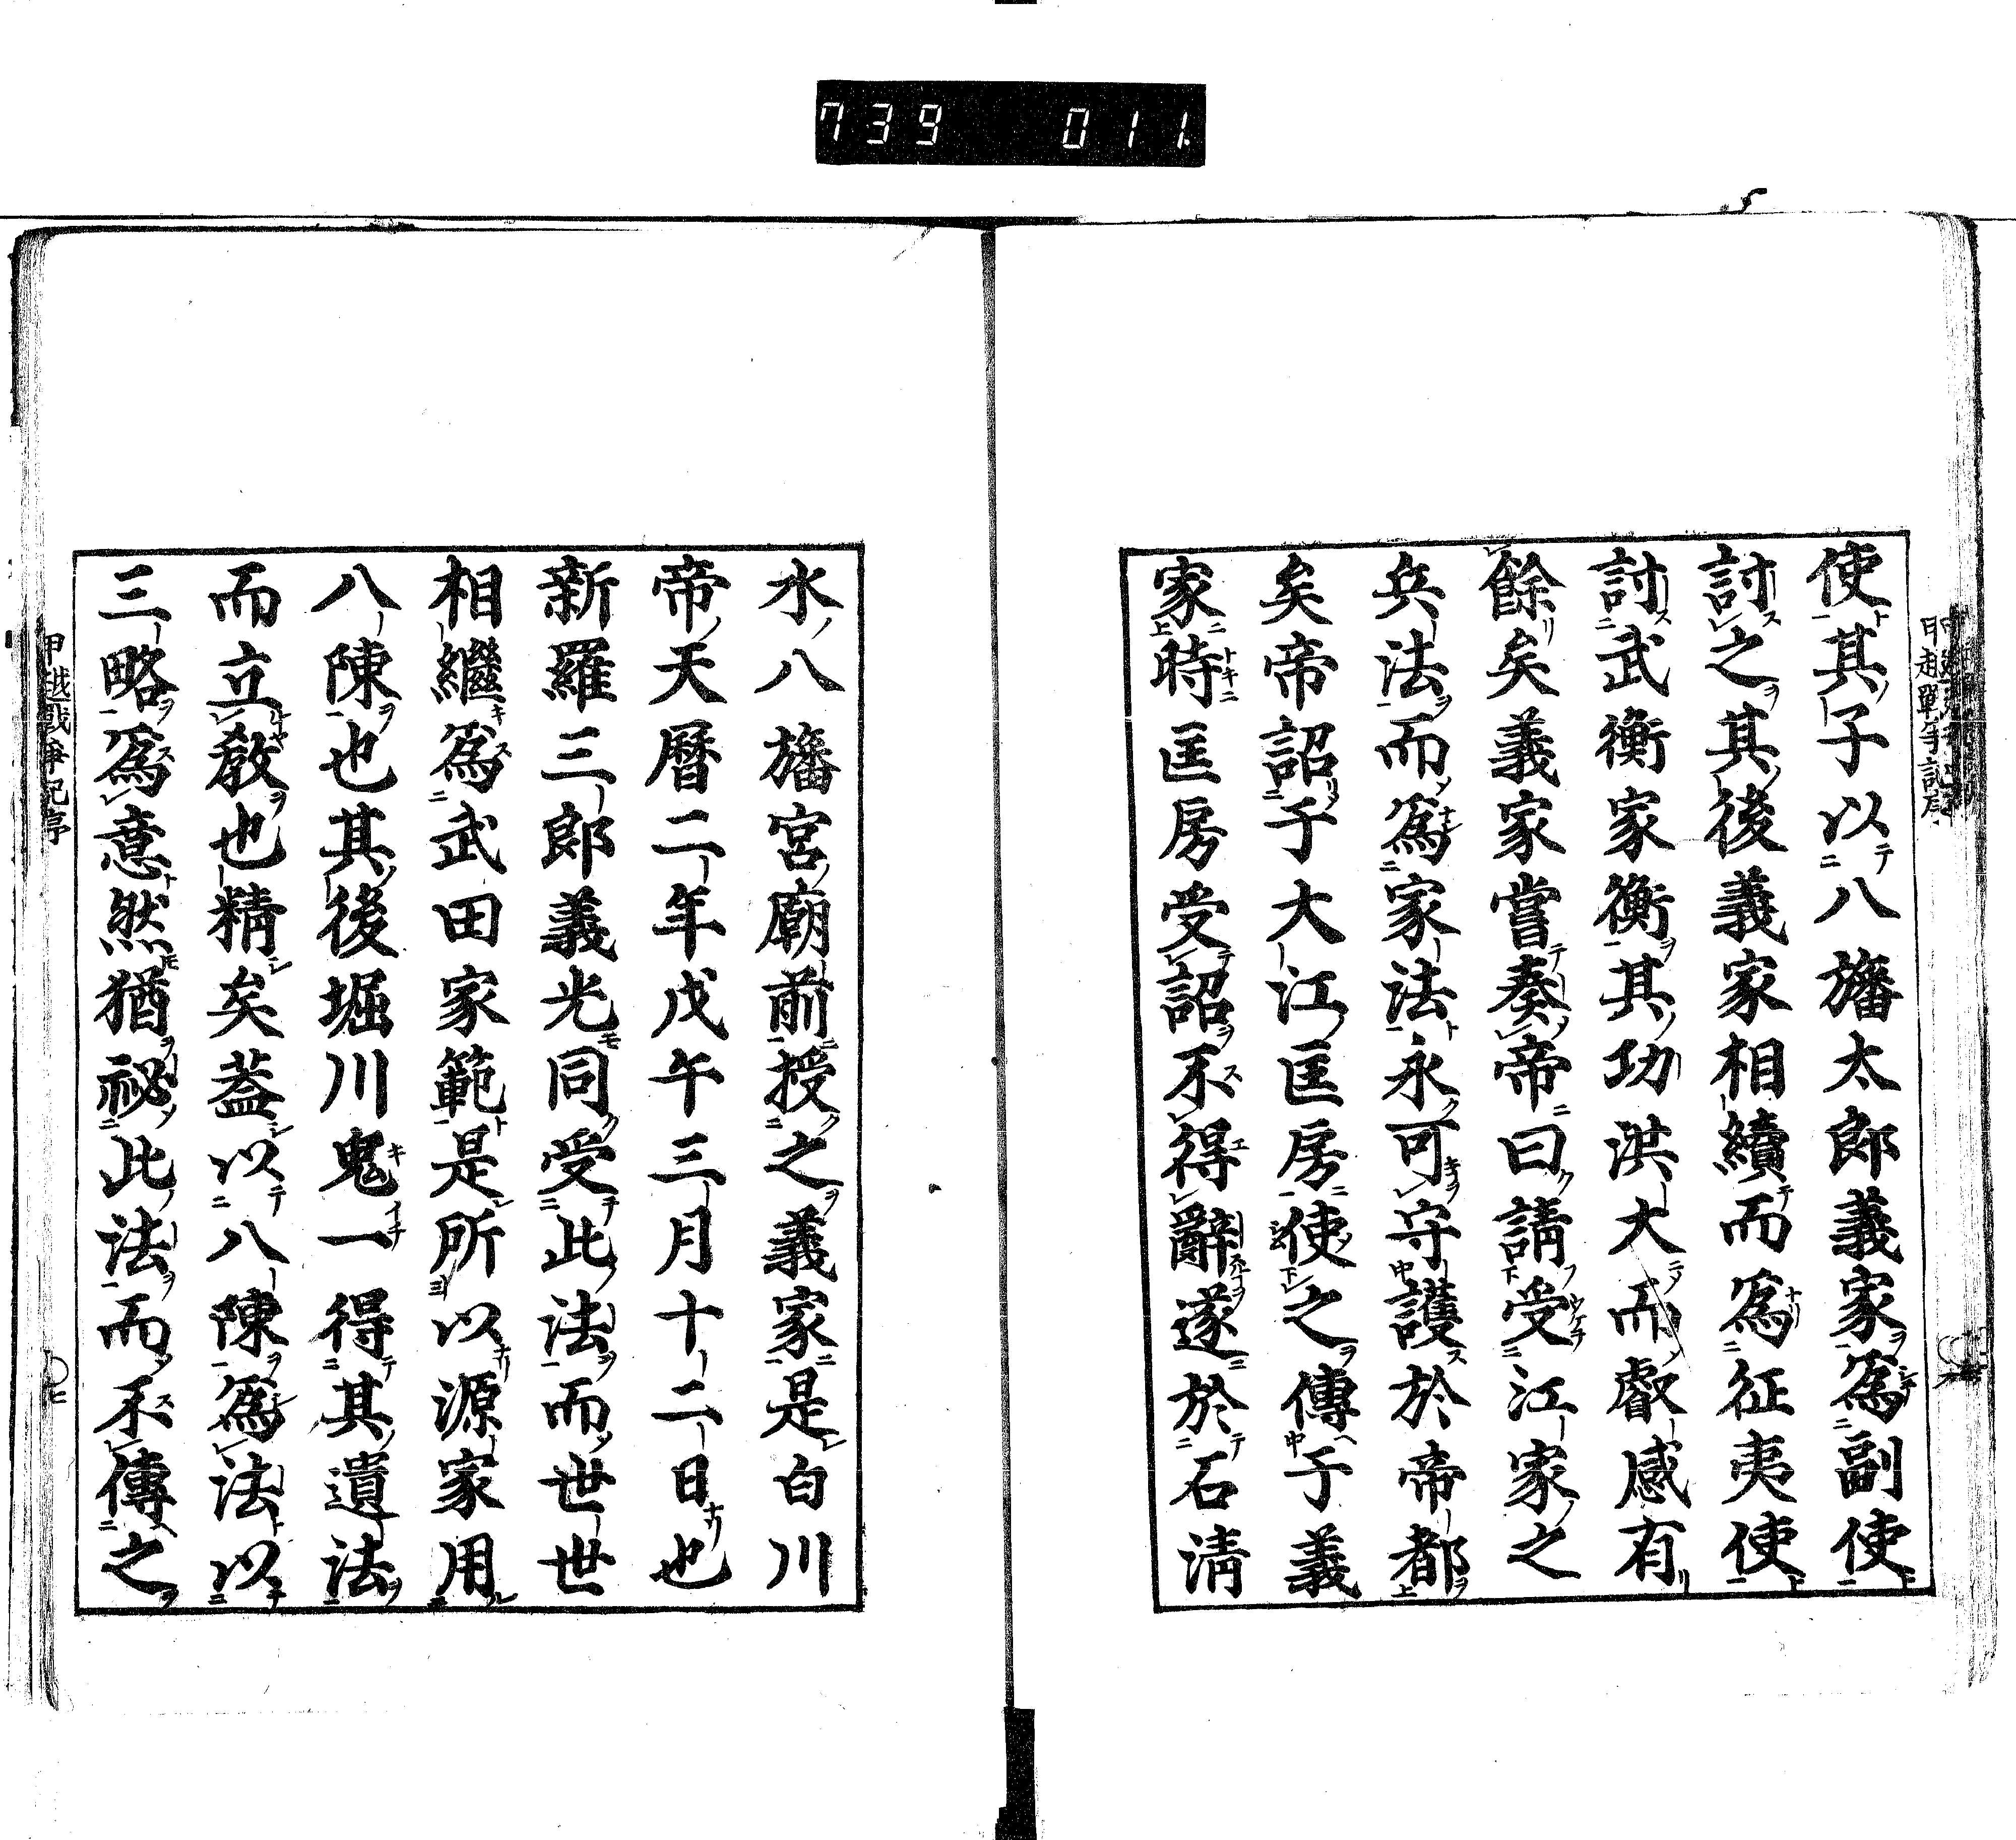 739 011
使其子以八旛太郎義家爲副使
討之其後義家相續而爲征夷使
討武衡家衡其功洪大而叡感有
餘矣義家嘗奏帝曰請受江家之
兵法而爲家法永可守護於帝都
矣帝詔于大江匡房使之傳于義
家時匡房受詔不得辭遂於石淸
水八旛宮廟前授之義家是白川
帝天曆二年戊午三月十二日也
新羅三郎義光同受此法而世世
相繼爲武田家範是所以源家用
八陳也其後堀川鬼一得其遺法
而立敎也精矣葢以八陳爲法以
三略爲意然猶祕此法而不傳之